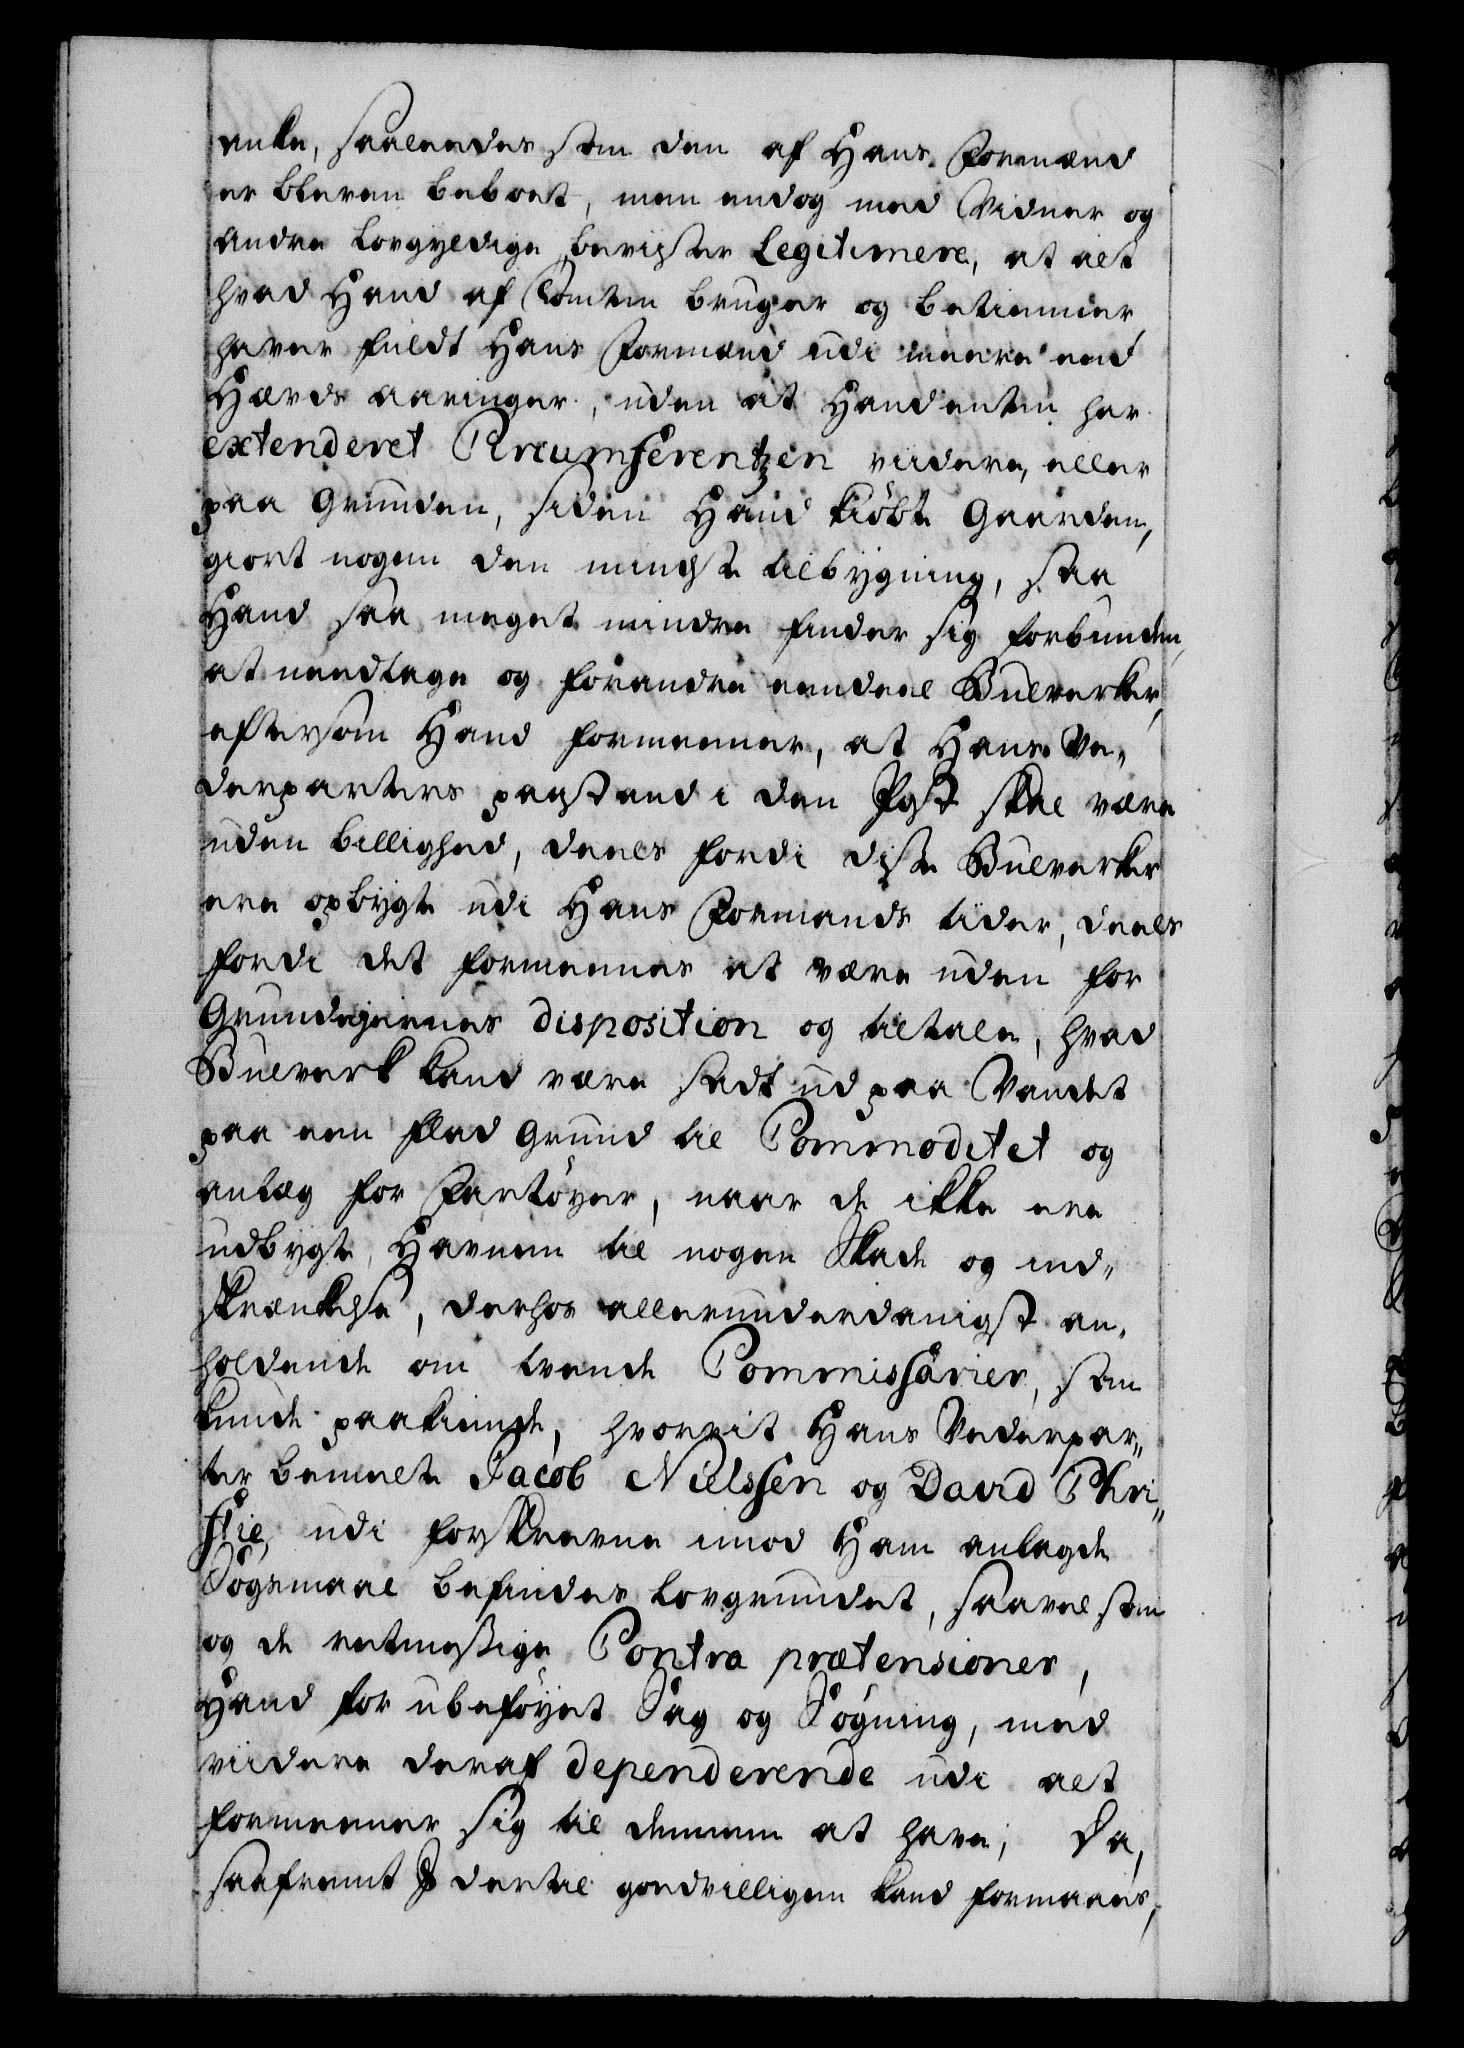 anke, saaleedes som den af Hans Formænd
er bleven beboet, men endog med Vidner og
andre lovgyldige beviiser Legitimere, at alt
hvad Hand af Tomten bruger og betienner
haver fuldt Hans Formænd udi meere end
Hævds aaringer, uden at Hand enten har
extenderet Circumferentzen viidere, eller
paa Grunden, siden Hand kiøbte Gaarden,
giort nogen den mindste tilbygning, saa
Hand saa meget mindre finder sig forbunden,
at needtage og forandre eendeel Bulverker,
eftersom Hand formeener, at Hans Ve„
derparters paastand i den Post skal være
uden billighed, deels fordi disse Bulverker
ere opbygte udi Hans Formands tider, deels
fordi det formeenes at være uden for
Grundejernes disposition og tiltale, hvad
Bulverk kand være sadt ud paa Vandet
paa een flad Grund til Commoditet og
anlæg for Fartøyer, naar de ikke ere
udbygte Havnen til nogen Skade og ind„
skrænkelse, derhos allerunderdanigst an„
holdende om tvende Commissarier, som
kunde paakiende, hvorvit Hans Vederpar„
ter bemelte Jacob Nielssen og David Chri„
stie, udi forskrevne imod Ham anlagde
Søgsmaal befindes lovgrundet, saavel som
og de retmessige Contra prætensioner,
Hand for ubeføyet Sag og Søgning, med
viidere deraf dependerende udi alt
formeener sig til dennem at have; Da,
saafremt I dertil goedvilligen kand formaaes,